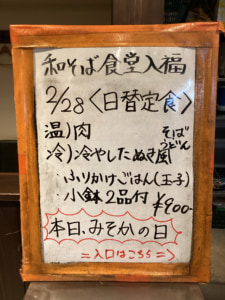 和そば食堂入福
2/28〈日替定食〉
温)肉 そば
冷)冷やしたぬき風 うどん
・ふりかけごはん(玉子)
・小鉢2品付 ¥900-
本日、みそかの日
=入口はこちら=>